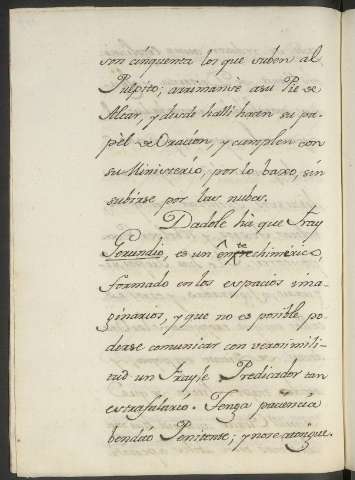 son cinquenta los que suben al
Pulpito; arrimanse a su Pie de
Altar, y desde halli hacen su pa-
pèl de Oracion, y cumplen con
su Ministerio, por lo baxo, sin
subirse por las nubes.
Dadole hà que Fray
Gerundio, es un ente chimerico,
formado en los espacios ima-
ginarios, y que no es posible, po-
derse comunicar con verosimili-
tud un Frayle Predicador tan
estrafalario. Tenga paciencia
bendito Penitente; y no se atonique.